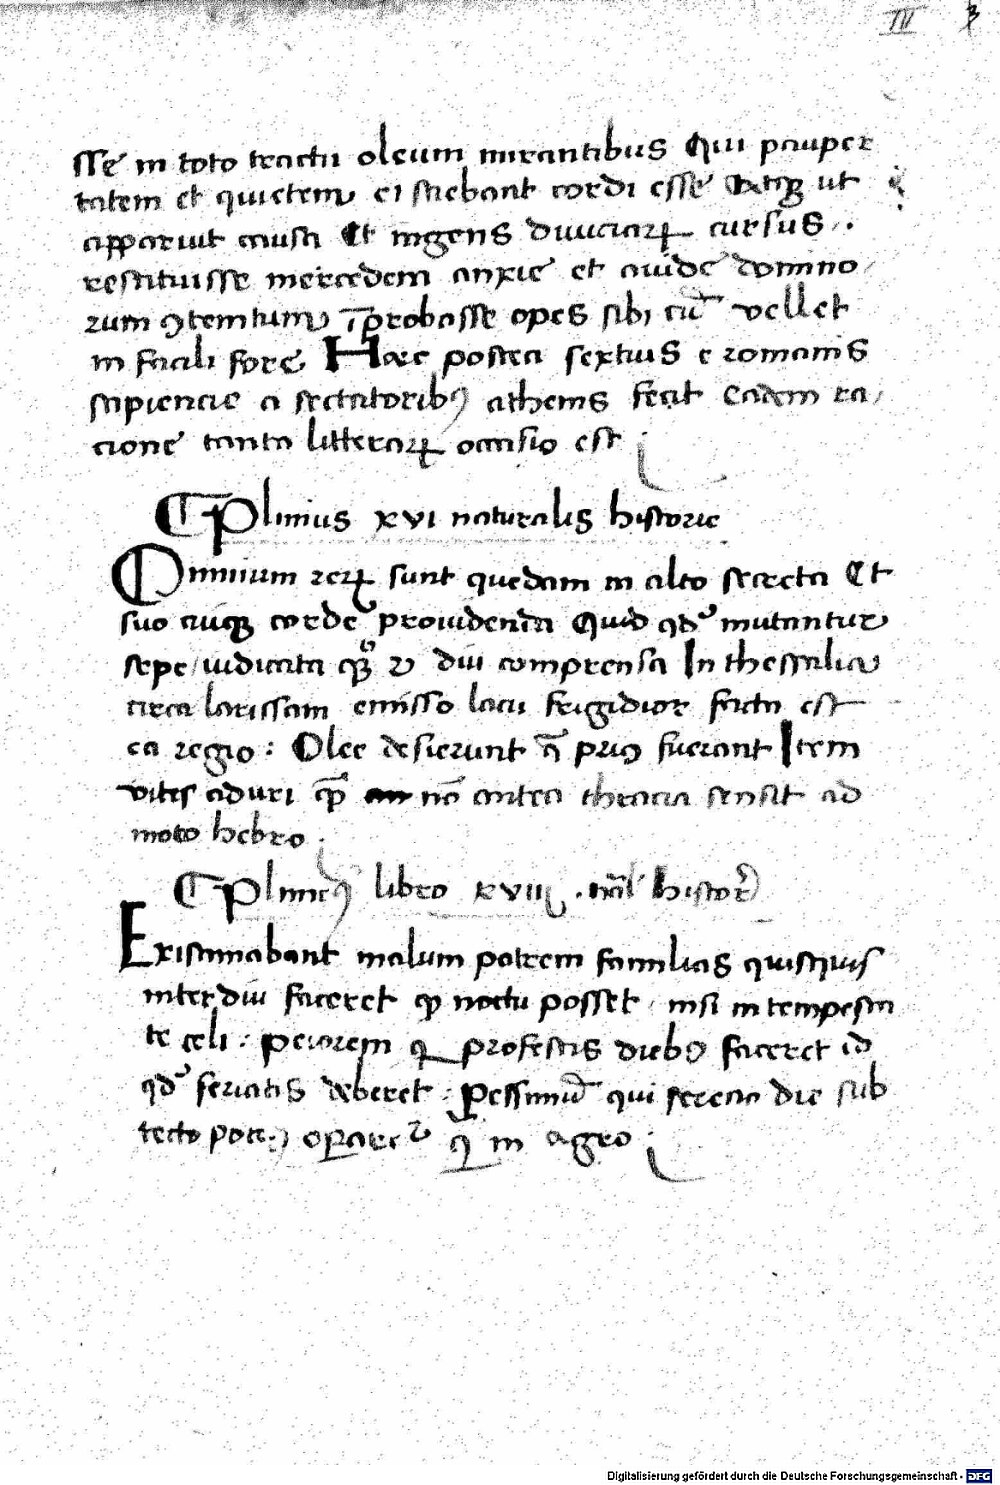 III 3
sse in toto tractu oleum mirantibus Qui pauper
tatem et quietem ei sciebant cordi esse Atqꝫ ut
apparuit causa Et ingens diuiciaꝝ cursus
restituisse mercedem anxie et auide domino
rum ꝯtemtum īprobasse opes sibi cū vellet
in facili fore Haec postea sextius e romanis
sapiencie a sectatoribꝰ athenis fecit Eadem ra/
cione tanta litteraꝝ occasio est
Plinius xvi naturalis historie
Omnium reꝝ sunt quedam in alto secreta Et
suo cuiqꝫ corde prouidenda Quid qd' mutantur
sepe iudicata diu comprensa In thessalia
circa larissam emisso lacu frigidior facta est
ea regio : Olee desierunt q̄ priꝰ fuerant Item
vites aduri qp̄ nō antea thracia sensit ad
moto hebro
Pliniꝰ libro xviii . nāl histor
Existimabant malum patrem familias quisquis
interdiu faceret qꝫ noctu posset / nisi in tempesta
te celi : peiorem qꝫ profestis diebꝰ faceret id
qd' feriatis deberet : Pessimū qui sereno die sub
tecto pociꝰ operaret' qꝫ in agro
Digitalisierung gefördert durch die Deutsche Forschungsgemeinschaft - DFG